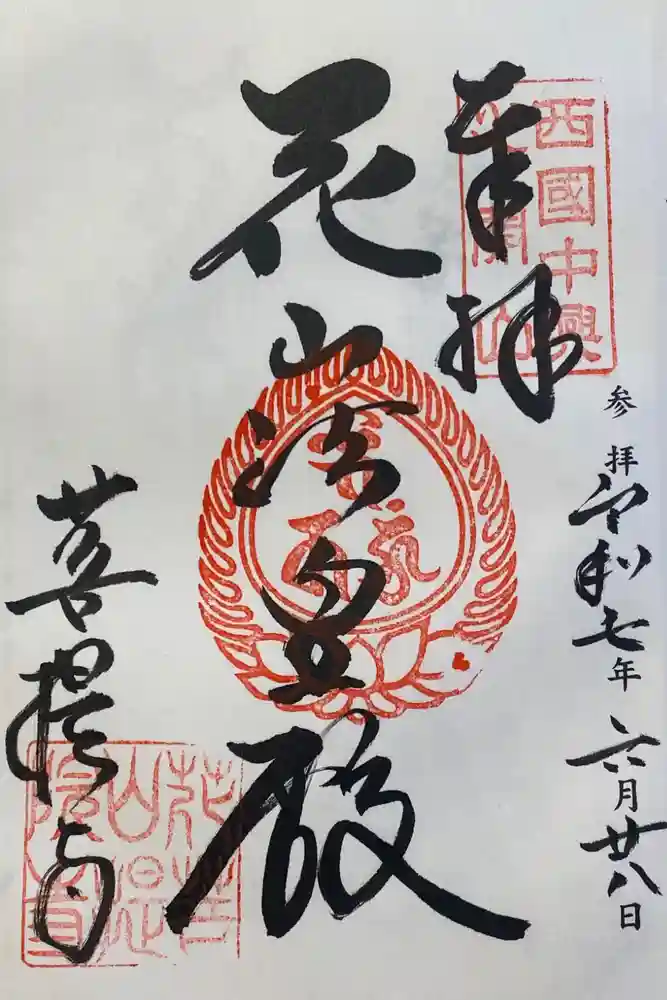 奉拝
西國中興
参拝 令和七年 六月廿八日
花山法皇殿
菩提寺